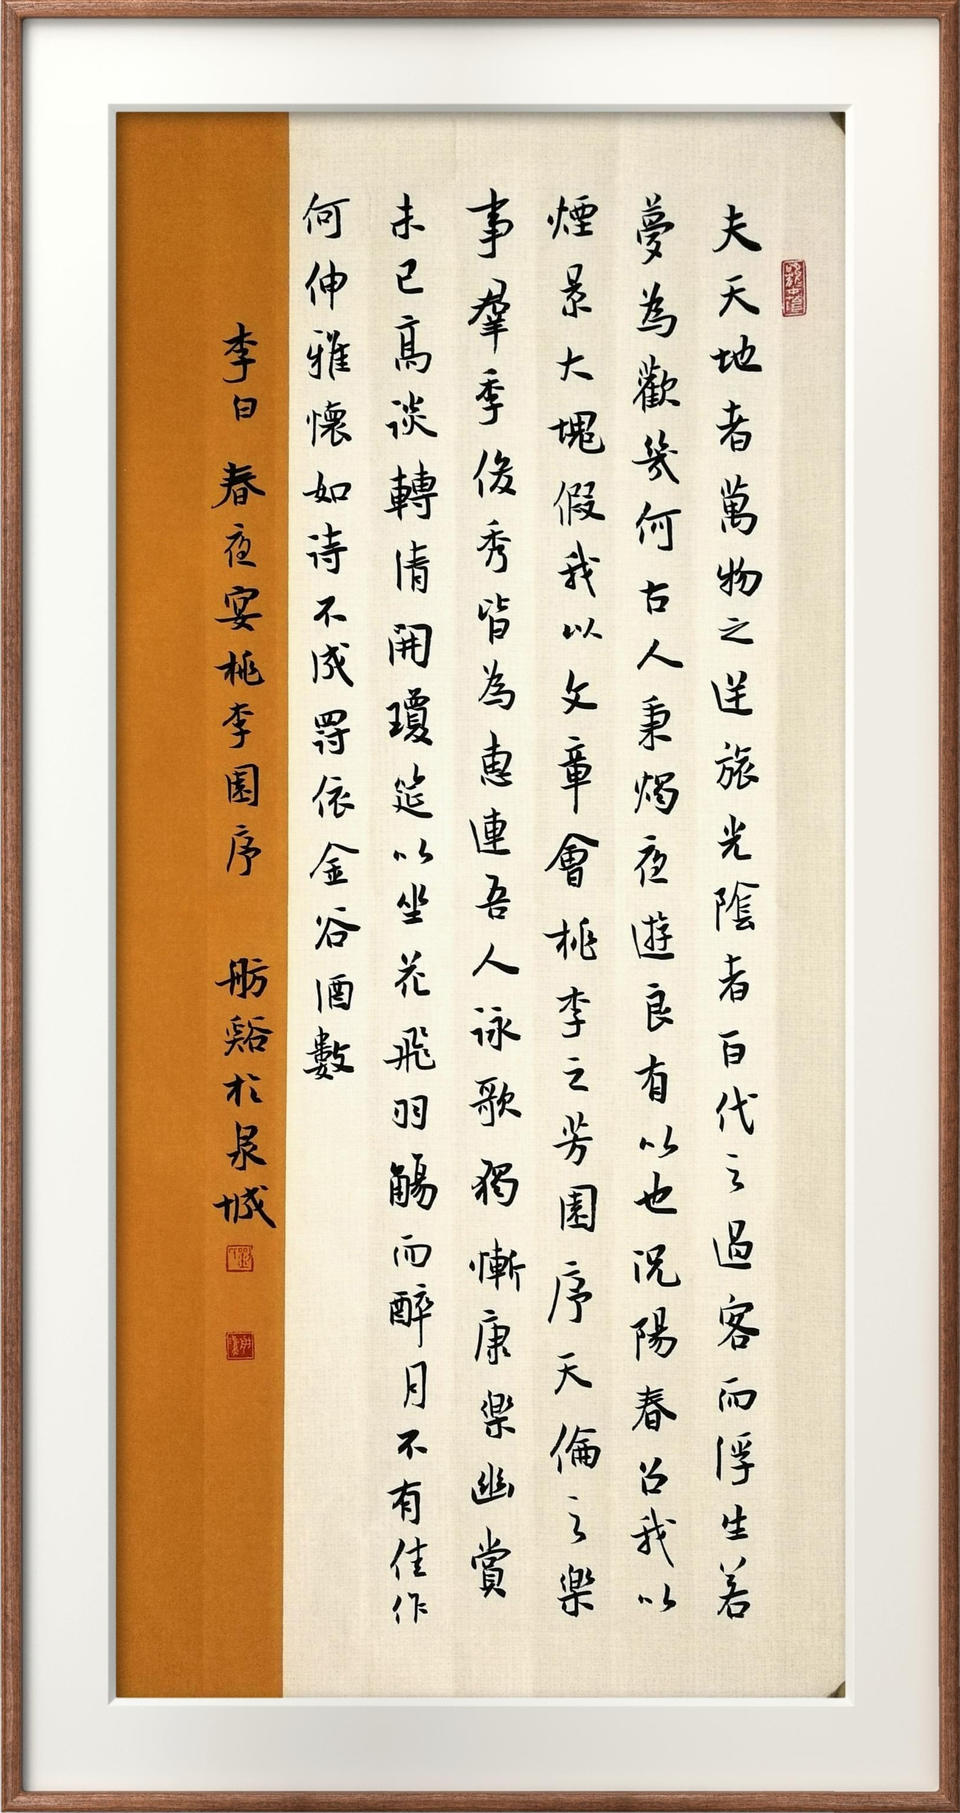 夫天地者萬物之逆旅光陰者百代之過客而浮生若
夢為歡幾何古人秉燭夜遊良有以也況陽春召我以
煙景大塊假我以文章會桃李之芳園序天倫之樂
事羣季俊秀皆為惠連吾人詠歌獨慚康樂幽賞
未已高談轉清開瓊筵以坐花飛羽觴而醉月不有佳作
何伸雅懷如詩不成罰依金谷酒數
李白 春夜宴桃李園序 舫谿於泉城